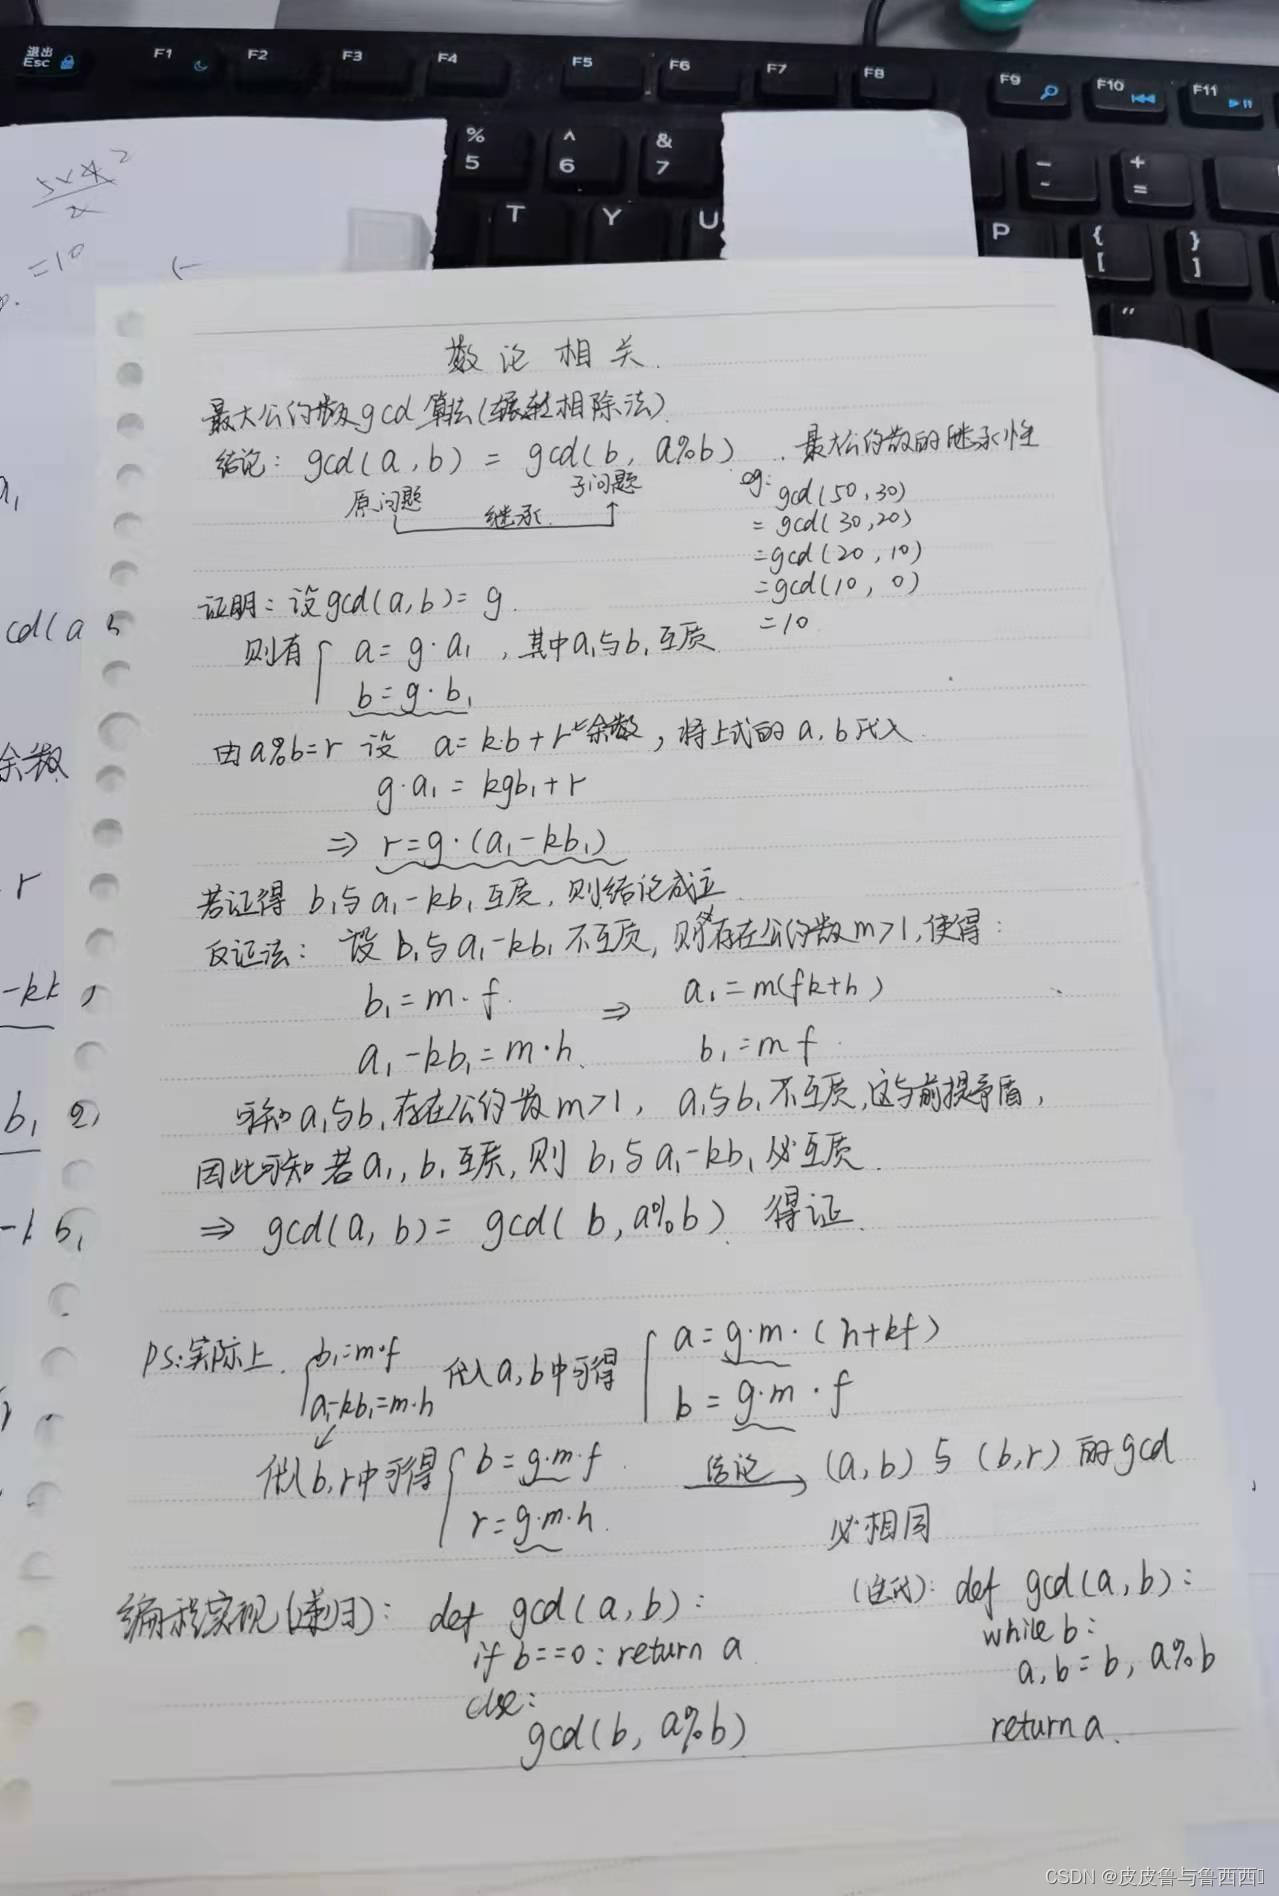 退出
Esc F1 F2 F3 F4 F5 F6 F7 F8 F9 F10 F11
% 5 ^ 6 & 7 - - + =
T Y U P { [ } ]
"
5×4 2
2
=10
数论相关.
最大公约数gcd算法(辗转相除法)
结论: gcd(a,b) = gcd(b, a%b) . 最大公约数的继承性
原问题 继承. 子问题
eg: gcd(50,30)
= gcd(30,20)
=gcd(20,10)
=gcd(10, 0)
=10
证明: 设gcd(a,b)= g.
则有 { a= g·a₁ , 其中a₁与b₁互质.
b= g·b₁
由a%b=r 设 a= k·b+r←余数, 将上式的a,b代入.
g·a₁ = kgb₁+r
⇒ r=g·(a₁-kb₁)
若证得 b₁与a₁-kb₁互质, 则结论成立.
反证法: 设b₁与a₁-kb₁不互质, 则必存在公约数m>1, 使得:
b₁=m·f. ⇒ a₁=m(fk+h)
a₁-kb₁=m·h. b₁=mf.
可知a₁与b₁存在公约数m>1, a₁与b₁不互质,这与前提矛盾,
因此可知若a₁,b₁互质,则 b₁与a₁-kb₁必互质.
⇒ gcd(a,b)= gcd(b,a%b). 得证.
PS:实际上. { b₁=m·f 代入a,b中可得 { a=g·m·(h+kf)
a₁-kb₁=m·h b=g·m·f
代入b,r中可得 { b=g·m·f. 结论 (a,b)与(b,r)的gcd
r=g·m·h. 必相同
编程实现(递归): def gcd(a,b):
if b==0: return a.
else:
gcd(b, a%b)
(迭代): def gcd(a,b):
while b:
a,b=b, a%b
return a.
a₁
cd(a b
余数
r
-kb
b₁
-k b₁
CSDN @皮皮鲁与鲁西西